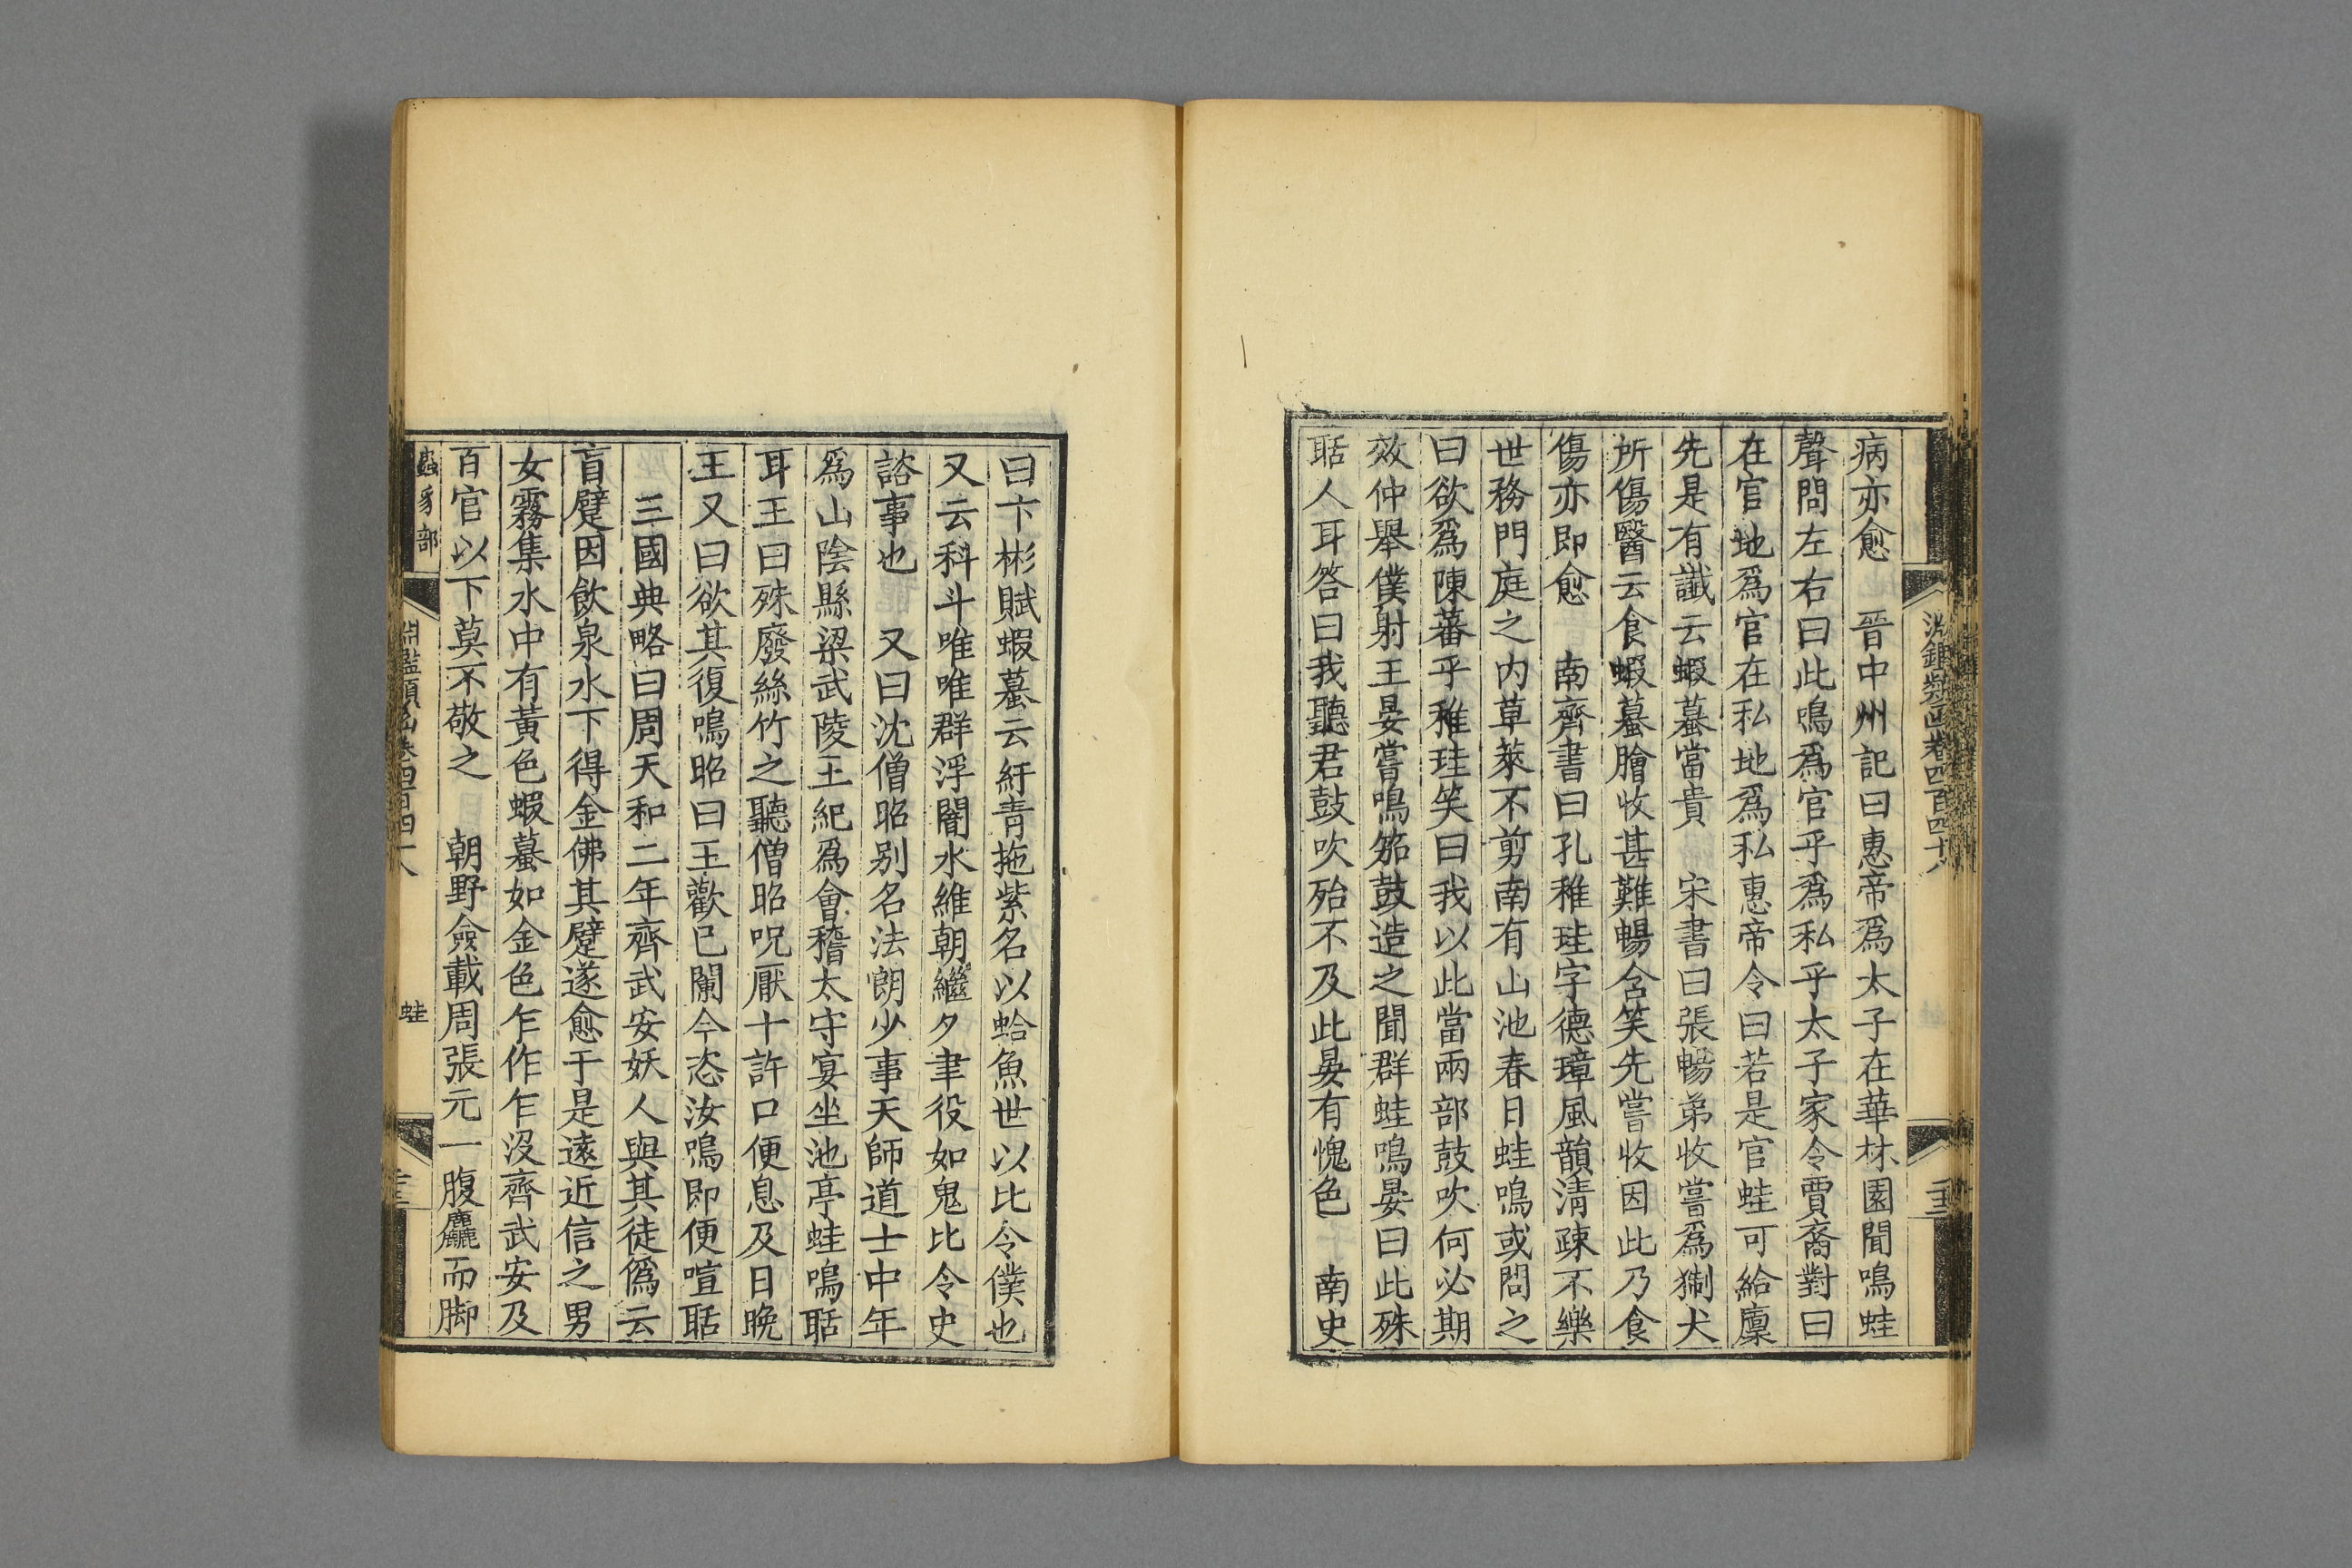 淵鑑類函卷四百四十八
病亦愈　晉中州記曰惠帝爲太子在華林園聞鳴蛙
聲問左右曰此鳴爲官乎爲私乎太子家令賈裔對曰
在官地爲官在私地爲私惠帝令曰若是官蛙可給廩
先是有讖云蝦蟇當貴　宋書曰張暢弟收嘗爲猘犬
所傷醫云食蝦蟇膾收甚難暢含笑先嘗收因此乃食
傷亦即愈　南齊書曰孔稚珪字德璋風韻清疎不樂
世務門庭之内草萊不剪南有山池春日蛙鳴或問之
曰欲爲陳蕃乎稚珪笑曰我以此當兩部鼓吹何必期
效仲舉僕射王晏嘗鳴笳鼓造之聞群蛙鳴晏曰此殊
聒人耳答曰我聽君鼓吹殆不及此晏有愧色　南史
曰卞彬賦蝦蟇云紆青拖紫名以蛤魚世以比令僕也
又云科斗唯唯群浮闇水維朝繼夕聿役如鬼比令史
諮事也　又曰沈僧昭别名法朗少事天師道士中年
爲山陰縣梁武陵王紀爲會稽太守宴坐池亭蛙鳴聒
耳王曰殊廢絲竹之聽僧昭呪厭十許口便息及日晚
王又曰欲其復鳴昭曰王歡已闌今恣汝鳴即便喧聒
三國典略曰周天和二年齊武安妖人與其徒僞云
盲躄因飲泉水下得金佛其躄遂愈于是遠近信之男
女霧集水中有黃色蝦蟇如金色乍作乍沒齊武安及
百官以下莫不敬之　朝野僉載周張元一腹麤而脚
蟲豸部
淵鑑類函卷四百四十八
蛙